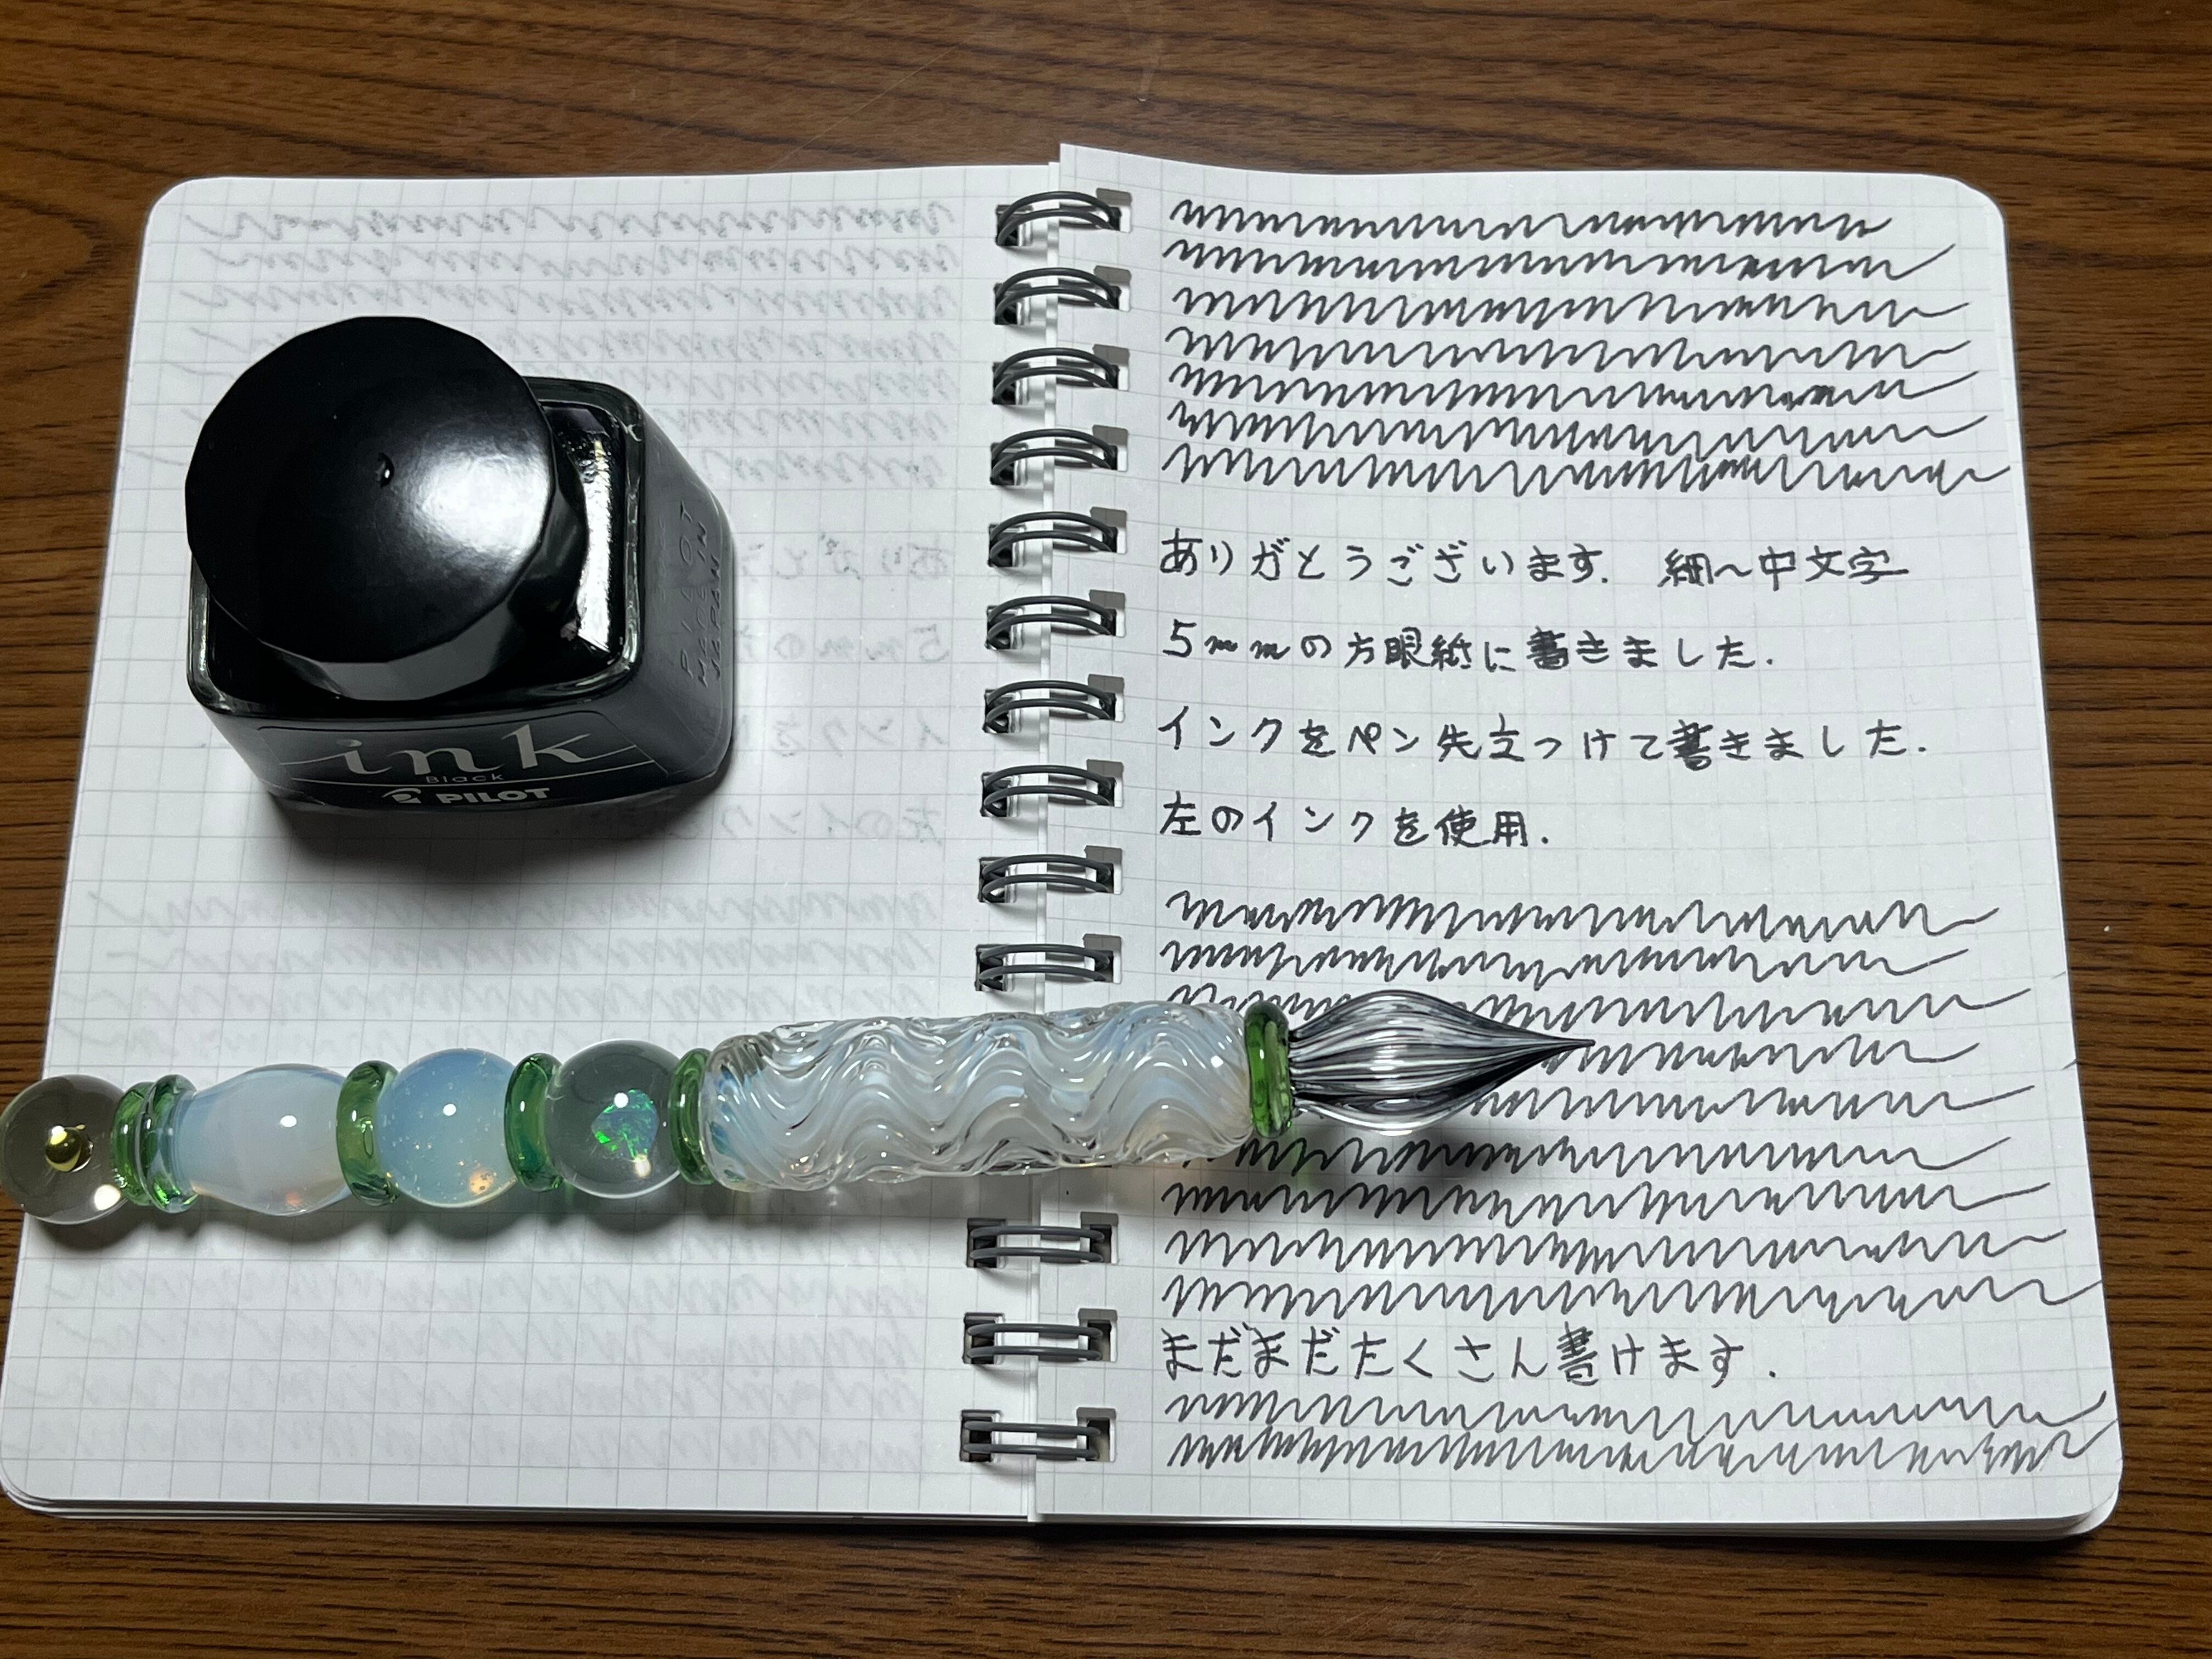 ink
Black
PILOT
PILOT
MADE IN
JAPAN
ありがとうございます. 細〜中文字
5mmの方眼紙に書きました.
インクをペン先立つけて書きました.
左のインクを使用.
まだまだたくさん書けます.